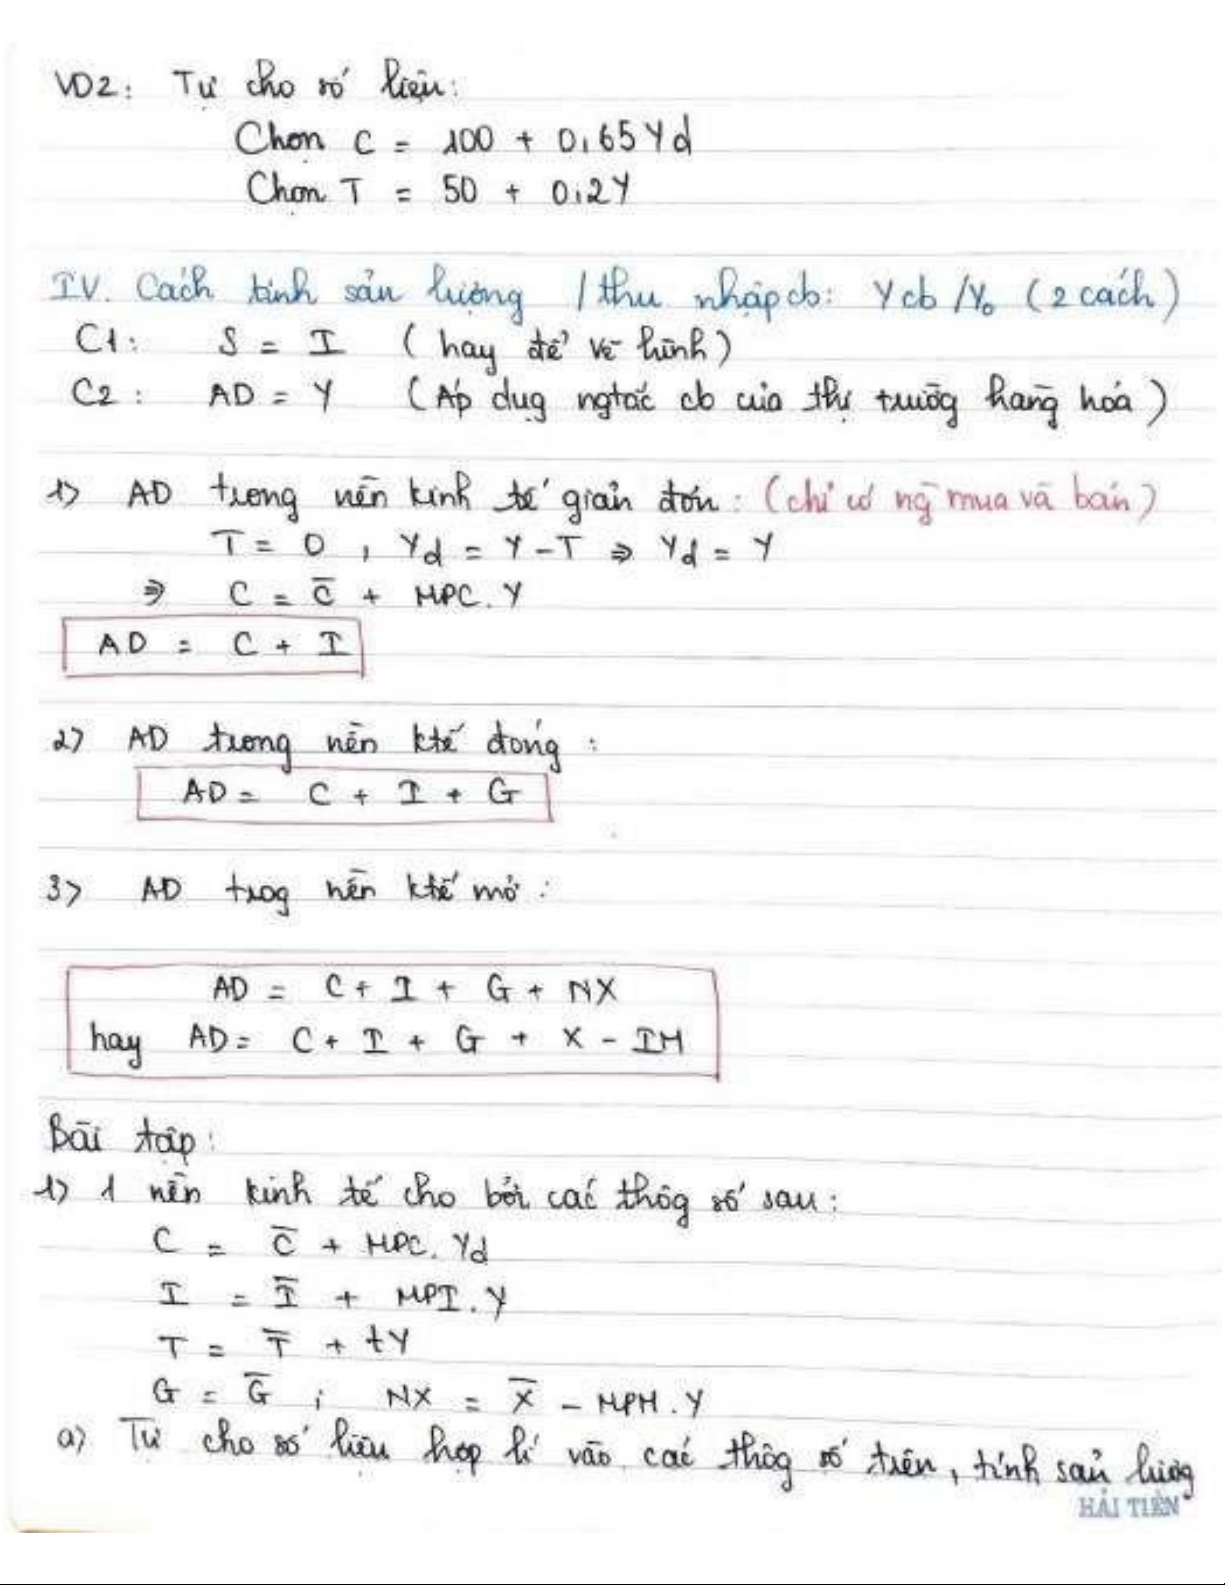 VD2: Tự cho số liệu:
Chọn C = 100 + 0,65Yd
Chọn T = 50 + 0,2Y
IV. Cách tính sản lượng / thu nhập cb: Ycb /Y₀ (2 cách)
C1: S = I (hay để vẽ hình)
C2: AD = Y (Áp dụg ngtắc cb của thị trườg hàng hóa)
1> AD trong nền kinh tế giản đơn: (chỉ có ng mua và bán)
T = 0 , Yd = Y - T ⇒ Yd = Y
⇒ C = C̅ + MPC.Y
AD = C + I
2> AD trong nền ktế đóng:
AD = C + I + G
3> AD trog nền ktế mở:
AD = C + I + G + NX
hay AD = C + I + G + X - IM
Bài tập:
1> 1 nền kinh tế cho bởi các thôg số sau:
C = C̅ + MPC.Yd
I = I̅ + MPI.Y
T = T̅ + tY
G = G̅ ; NX = X̅ - MPM.Y
a) Tự cho số liệu hợp lí vào các thôg số trên, tính sản lượg
HẢI TIẾN